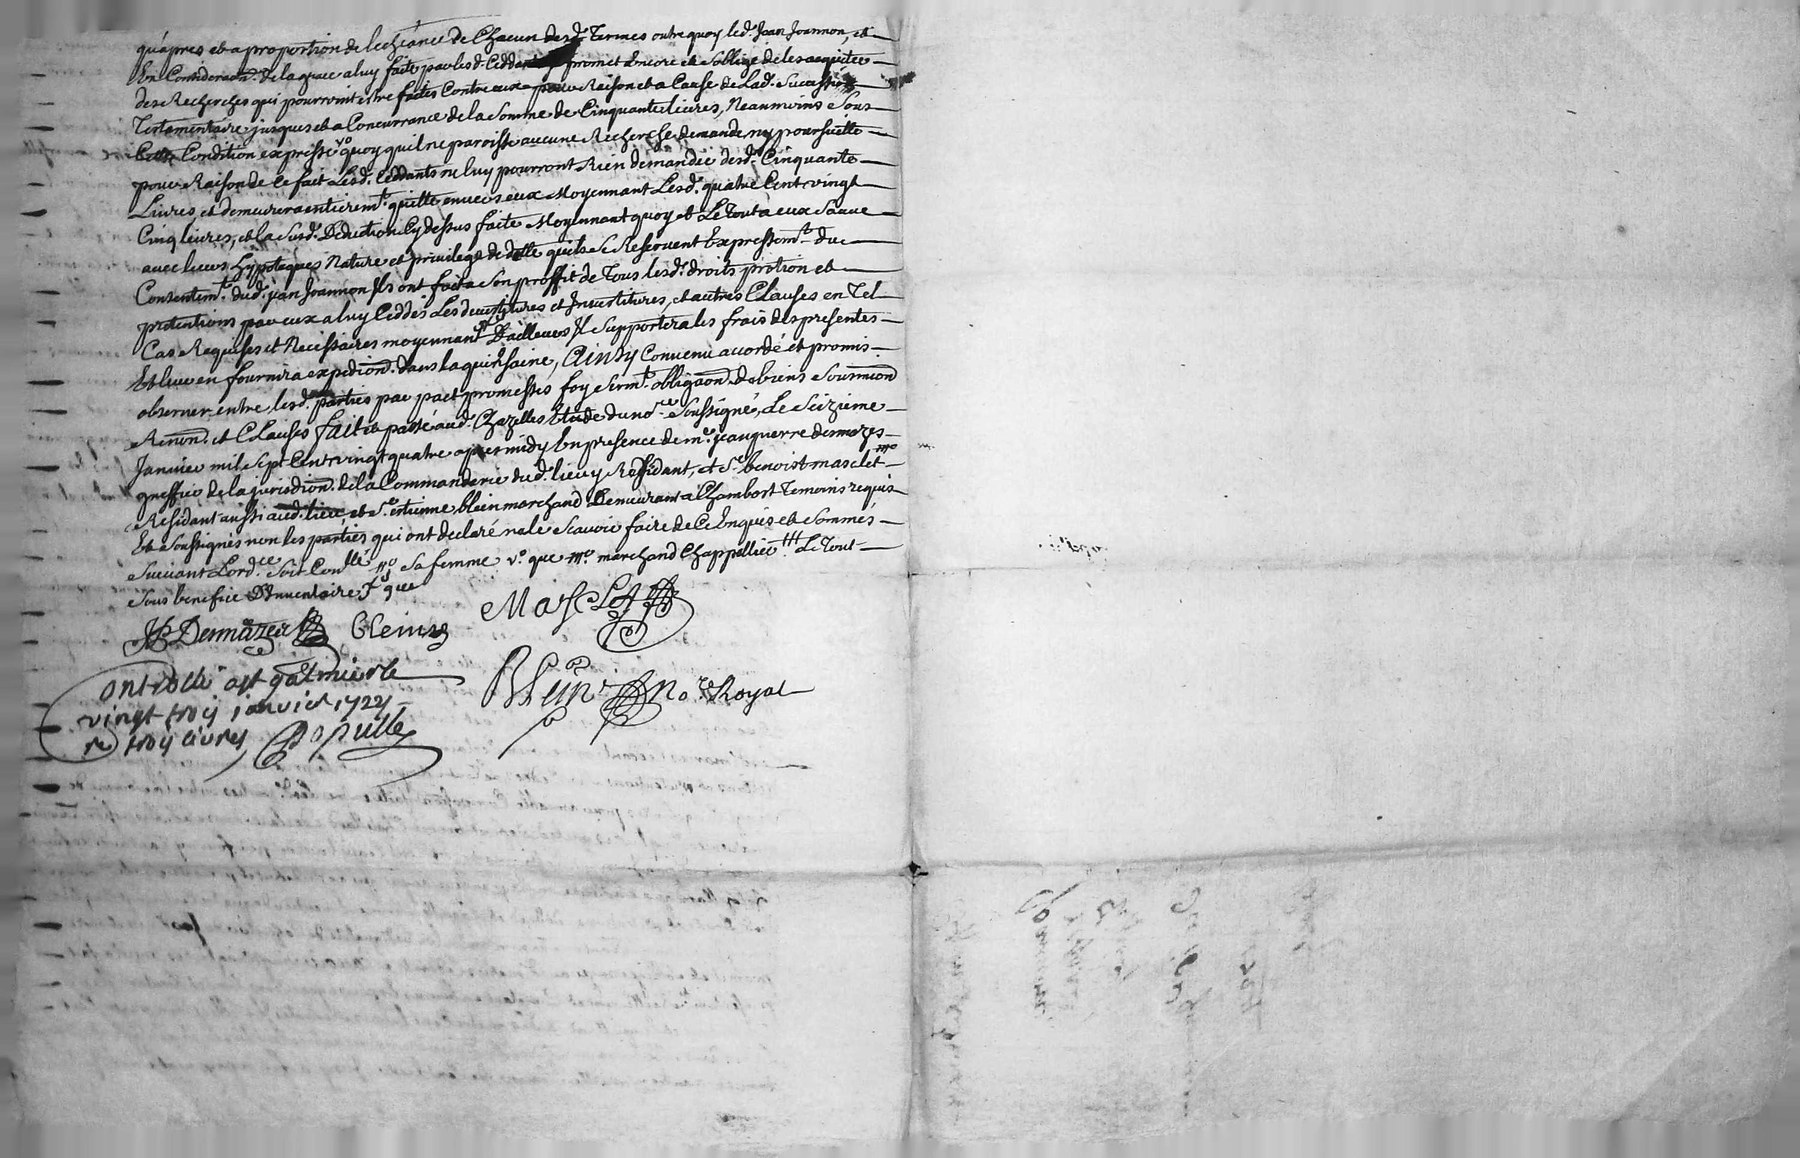 qu'apres et a proportion de lecheance de Chacun desd. Termes outre quoy led. Jean Joannon, et
En Consideraõn. de la grace a luy faite par lesd. Ceddants promet Encore et S'oblige de les acquitter
des Recherches qui pourroint estre faites Contre eux pour Raison et a Cause de Lad. Succession
Testamentaire jusques et a Concurrance de la Somme de Cinquante livres, Neanmoins Sous
Cette Condition expresse que quoy quil ne paroisse aucune Recherche demande ny poursuitte
pour Raison de Ce fait Lesd. Ceddants ne luy pourront Rien demander desd. Cinquante
Livres et demeurera entierem.t quitte envers eux Moyennant Lesd. quatre Cent vingt
Cinq livres, et la Susd. Deduction Cy dessus faite Moyennant quoy et Le Tout a eux Sauve
avec leurs hypoteques Nature et privilege de dotte quils Se Reservent Expressem.t du
Consentem.t dud. jean Joannon Ils ont fait a Son proffit de Tous lesd. droits portion et
pretentions par eux a luy Ceddés Les devestitures et Investitures, et autres Clauses en Tel
Cas Requises et Necessaires moyennant D'ailleurs Il Supportera les frais des presentes
Et leur en fournira expediond. dans la quinsaine, Ainsy Convenu accordé et promis
observer entre lesd. parties par pact promesses foy Serm.t obligaond. de biens Soumiond
Renond. et Clauses fait et passé aud. Chazelles Etude du no.re Soussigné, Le Seizieme
Janvier mil Sept Cent vingt quatre apres midy En presence de m.e jean pierre desmazes
greffier de la jurisdiond. de la Commanderie dud. lieu y Residant, et S.r benoist masclet
Residant aussi aud. lieu, et S.r estienne blein marchand Demeurant a Chambost Temoins requis
Et Soussignés non les parties qui ont declaré ne le Scavoir faire de Ce Enquis et Sommés
Suivant Lord.ce Soit Conllé sa femme v.e que m.e marchand Chappellier Le Tout
Sous benefice D'Inventaire que
JP Desmazes Blein
Masclet
Controllé a st galmier le
vingt trois janvier 1724
re trois livres Populle
Blein No.re Royal